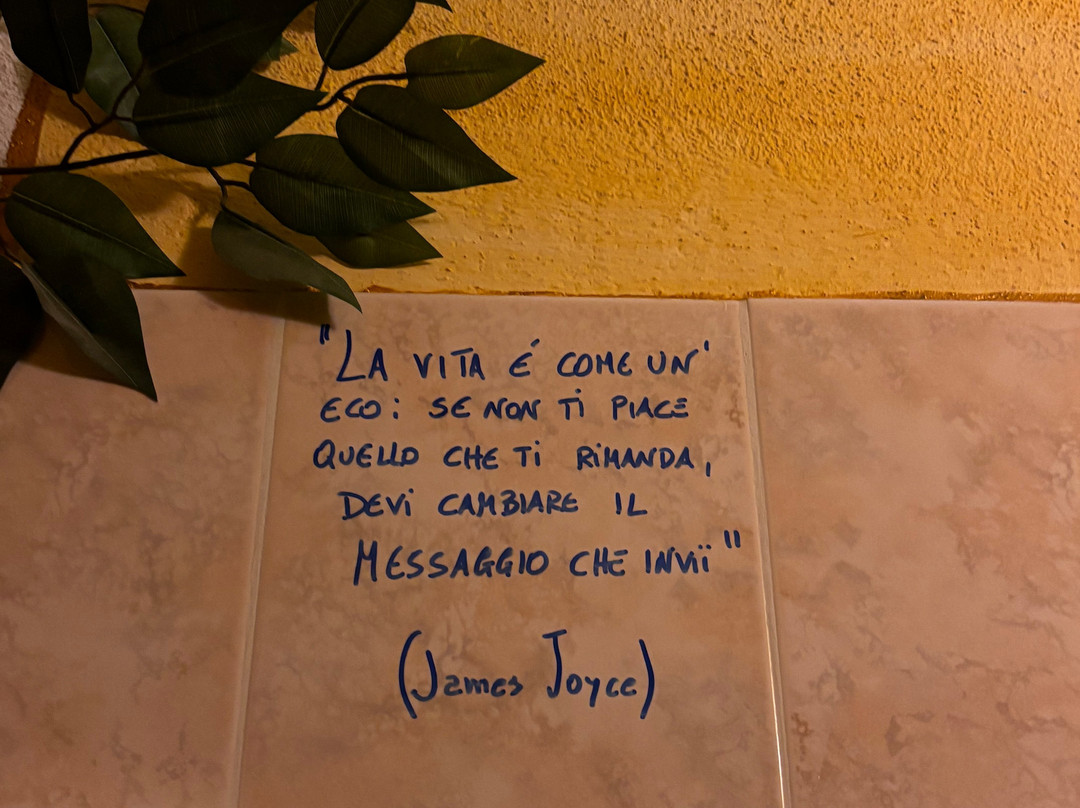 "LA VITA É COME UN'
ECO: SE NON TI PIACE
QUELLO CHE TI RIMANDA,
DEVI CAMBIARE IL
MESSAGGIO CHE INVII"
(James Joyce)